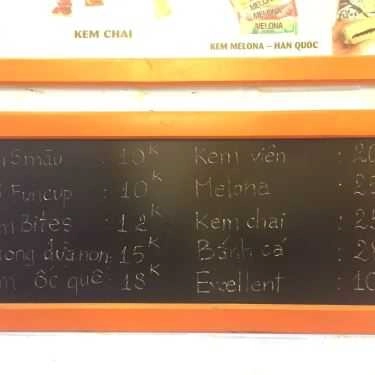 KEM CHAI
MELONA
MELONA
KEM MELONA – HÀN QUỐC
5 màu : 10K
Funcup : 10K
Bites : 12K
dừa non : 15K
ốc quế : 18K
Kem viên : 20
Melona :
Kem chai :
Bánh cá :
Excellent : 10